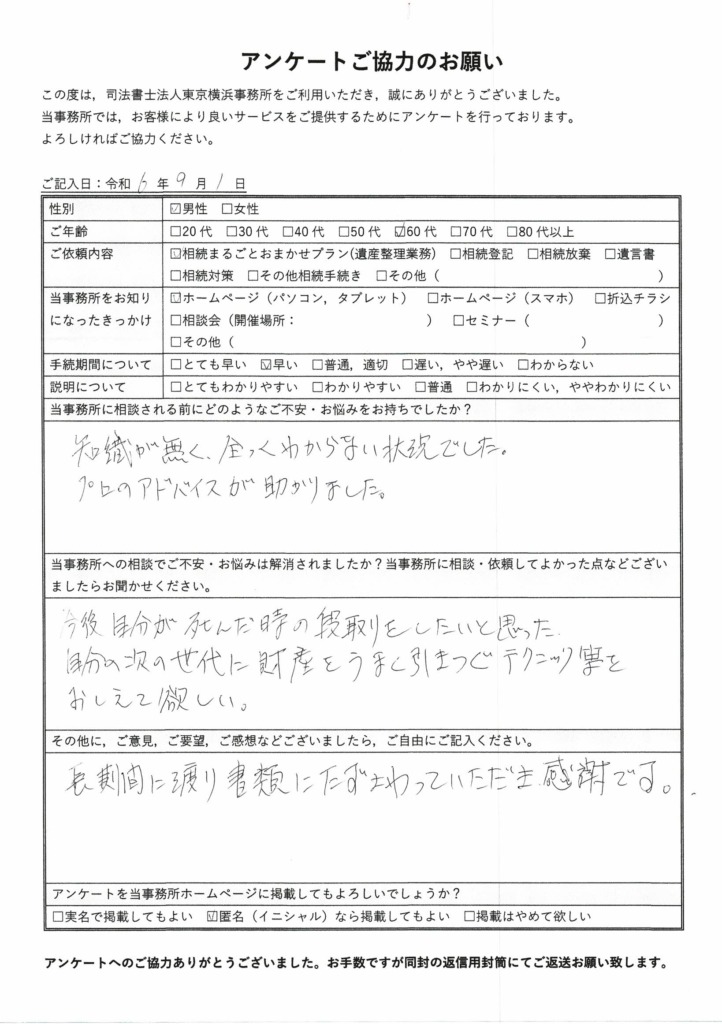 アンケートご協力のお願い
この度は，司法書士法人東京横浜事務所をご利用いただき，誠にありがとうございました。
当事務所では，お客様により良いサービスをご提供するためにアンケートを行っております。
よろしければご協力ください。
ご記入日：令和 6 年 9 月 1 日
性別 ☑男性 □女性
ご年齢 □20 代 □30 代 □40 代 □50 代 ☑60 代 □70 代 □80 代以上
ご依頼内容 ☑相続まるごとおまかせプラン(遺産整理業務) □相続登記 □相続放棄 □遺言書
□相続対策 □その他相続手続き □その他（ ）
当事務所をお知り ☑ホームページ（パソコン，タブレット） □ホームページ（スマホ） □折込チラシ
になったきっかけ □相談会（開催場所： ） □セミナー（ ）
□その他（ ）
手続期間について □とても早い ☑早い □普通，適切 □遅い，やや遅い □わからない
説明について □とてもわかりやすい □わかりやすい □普通 □わかりにくい，ややわかりにくい
当事務所に相談される前にどのようなご不安・お悩みをお持ちでしたか？
知識が無く、全っくわからない状況でした。
プロのアドバイスが助かりました。
当事務所への相談でご不安・お悩みは解消されましたか？当事務所に相談・依頼してよかった点などござい
ましたらお聞かせください。
今後自分が死んだ時の段取りをしたいと思った
自分の次の世代に財産をうまく引きつぐテクニック等を
おしえて欲しい。
その他に，ご意見，ご要望，ご感想などございましたら，ご自由にご記入ください。
長期間に渡り書類にたずさわっていただき感謝です。
アンケートを当事務所ホームページに掲載してもよろしいでしょうか？
□実名で掲載してもよい ☑匿名（イニシャル）なら掲載してもよい □掲載はやめて欲しい
アンケートへのご協力ありがとうございました。お手数ですが同封の返信用封筒にてご返送お願い致します。